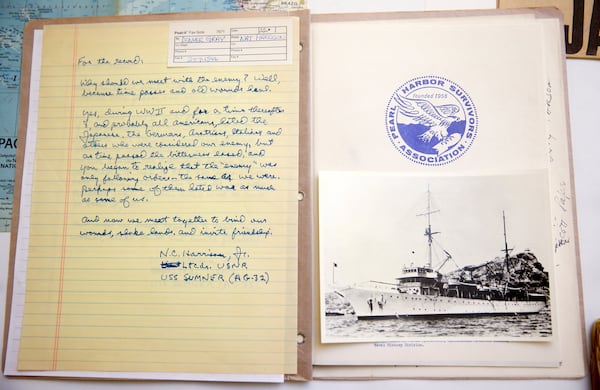 BRAZIL
Post-it® Fax Note 7671
Date
pages
To
From NAT HARRISON
Co./Dept.
Co.
Phone #
Phone #
Fax #
Fax #
For the record:
Why should we meet with the enemy? Well,
because time passes and old wounds heal.
Yes, during WWII and for a time thereafter
I, and probably all Americans, hated the
Japanese, the Germans, Austrians, Italians and
others who were considered our enemy, but
as time passed the bitterness eased, and
you begin to realize that the "enemy" was
only following orders - the same as we were.
Perhaps some of them hated war as much
as some of us.
And now we meet together to bind our
wounds, shake hands and invite friendship.
N.C. Harrison, Jr.
Ltcdr. USNR
USS SUMNER (AG-32)
PEARL HARBOR SURVIVORS ASSOCIATION
founded 1958
Naval History Division.
PAC
JA